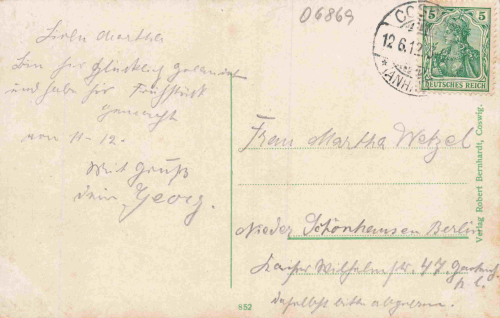 06869
COS
12.6.12
(ANH.
5 5
DEUTSCHES REICH
Liebe Martha
Bin hir Glücklich gelandet
und habe hir Frühstük
gemacht
von 11-12.
Mit Gruß
dein Georg.
Frau Martha Wetzel
Nieder Schönhausen Berlin
Kaiser Wilhelm str. 47
daselbst bitte abgeben.
Verlag Robert Bernhardt, Coswig.
852